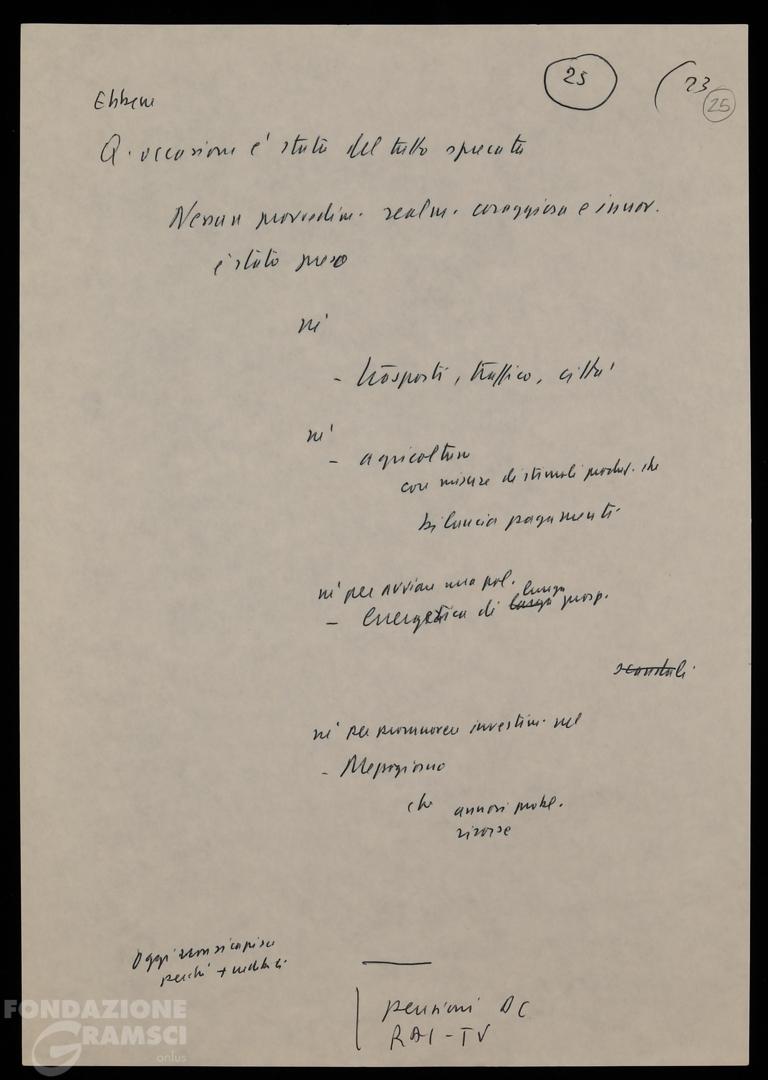 25
23
25
Ebbene
Q. occasione è stata del tutto sprecata
Nessun provvedim. realm. coraggioso e innov.
è stato preso
né
- trasporti, traffico, città
né
- agricoltura
con misure di stimoli produt. che
bilancia pagamenti
né per avviare una pol.
- Energetica di lunga prosp.
scandali
né per promuovere investim. nel
- Mezzogiorno
che annosi probl.
risorse
Oggi non si capisce
perché +
pensioni DC
RAI-TV
FONDAZIONE
GRAMSCI
onlus